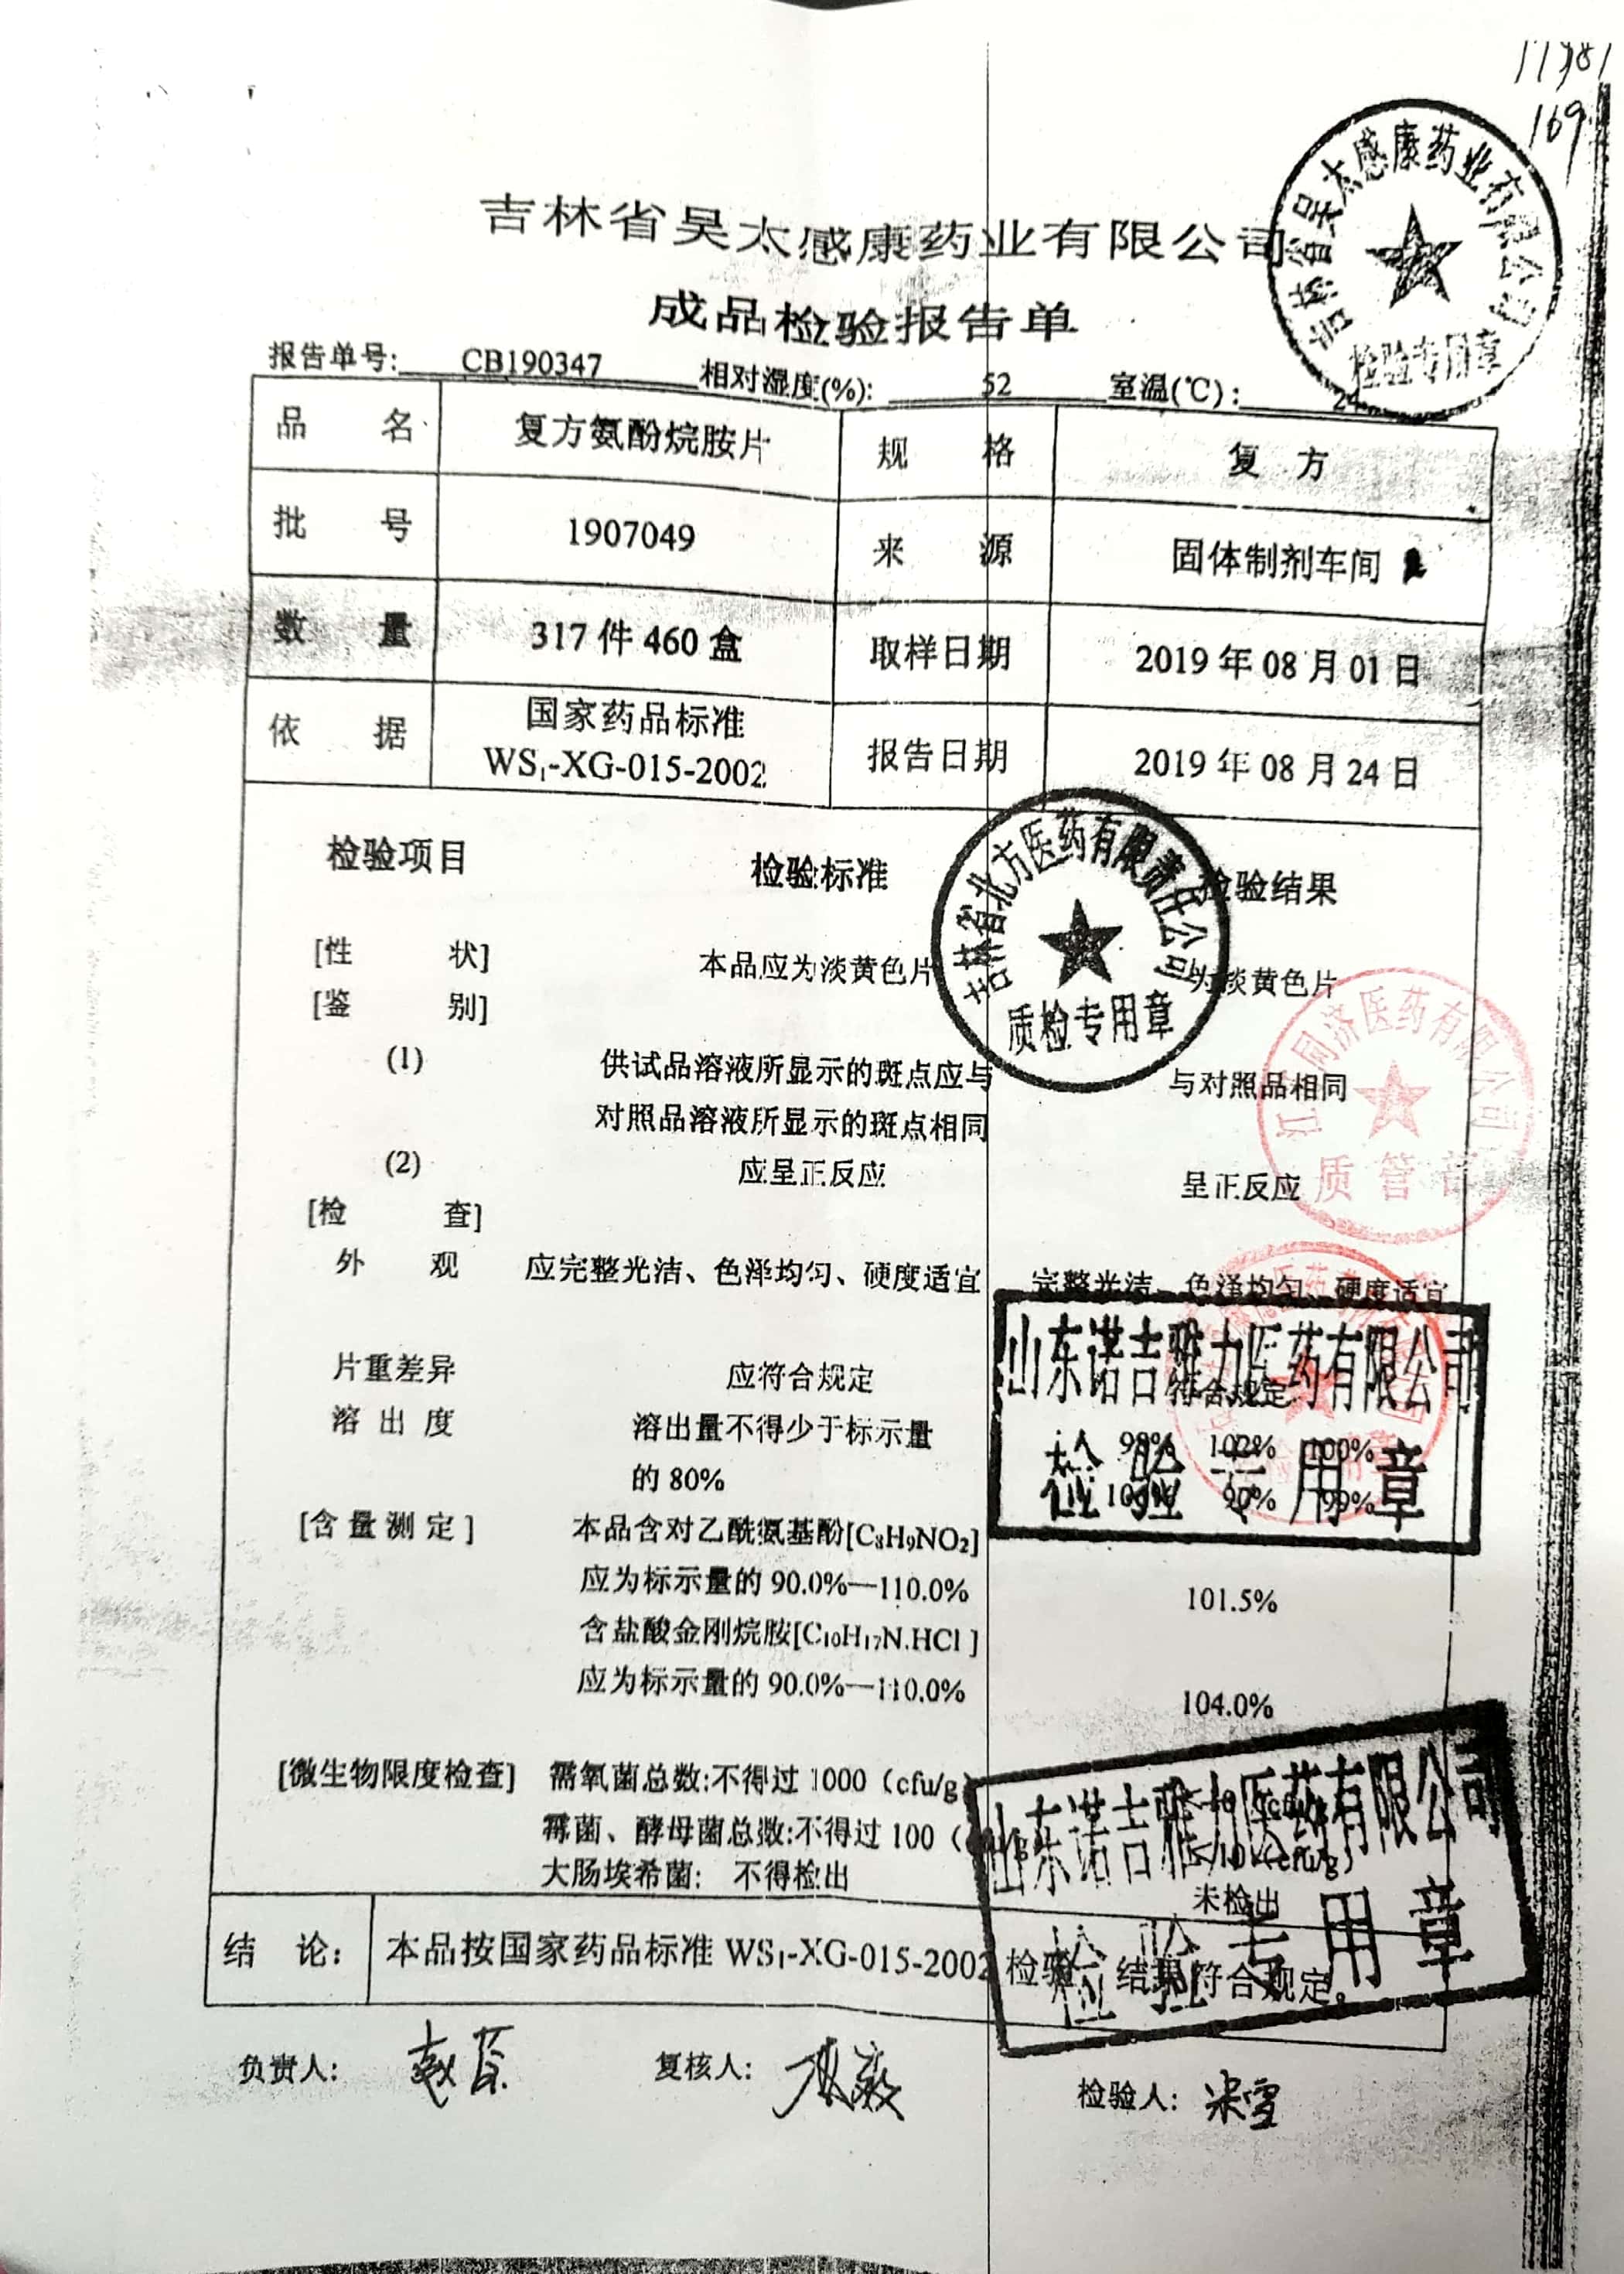 11981
169
吉林省吴太感康药业有限公司
成品检验报告单
吉林省吴太感康药业有限公司
检验专用章
报告单号: CB190347 相对湿度(%): 52 室温(℃): 24
品 名 复方氨酚烷胺片 规 格 复 方
批 号 1907049 来 源 固体制剂车间
数 量 317 件 460 盒 取样日期 2019 年 08 月 01 日
依 据 国家药品标准 WS₁-XG-015-2002 报告日期 2019 年 08 月 24 日
检验项目 检验标准 检验结果
吉林省北方医药有限责任公司
质检专用章
[性 状] 本品应为淡黄色片 为淡黄色片
[鉴 别]
(1) 供试品溶液所显示的斑点应与 与对照品相同
对照品溶液所显示的斑点相同
(2) 应呈正反应 呈正反应
同济医药有限公司
质管部
[检 查]
外 观 应完整光洁、色泽均匀、硬度适宜 完整光洁、色泽均匀、硬度适宜
片重差异 应符合规定 符合规定
溶 出 度 溶出量不得少于标示量 98% 102% 100%
的 80% 90% 99%
山东诺吉雅力医药有限公司
检验专用章
[含 量 测 定] 本品含对乙酰氨基酚[C₈H₉NO₂]
应为标示量的 90.0%—110.0% 101.5%
含盐酸金刚烷胺[C₁₀H₁₇N.HCl ]
应为标示量的 90.0%—110.0% 104.0%
[微生物限度检查] 需氧菌总数:不得过 1000（cfu/g）
霉菌、酵母菌总数:不得过 100（cfu/g） <10 (cfu/g)
大肠埃希菌: 不得检出 未检出
山东诺吉雅力医药有限公司
检验专用章
结 论: 本品按国家药品标准 WS₁-XG-015-2002 检验, 结果符合规定。
负责人: 复核人: 检验人: